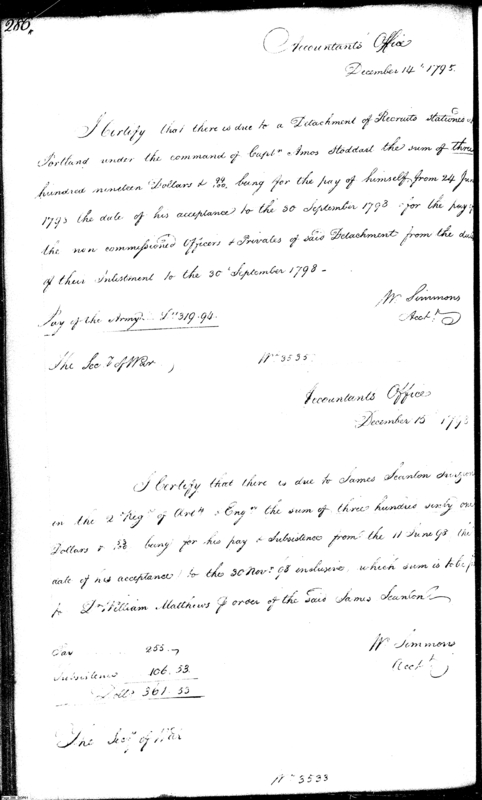 286.
Accountants Office
December 14th 1798.
I Certify that there is due to a Detachment of Recruits stationed at
Portland under the command of Captn Amos Stoddard the sum of three
hundred nineteen Dollars & 94/100 being for the pay of himself from 24 June
1798 the date of his acceptance to the 30 September 1798 for the pay of
the non commissioned Officers & Privates of said Detachment from the date
of their Inlistment to the 30 September 1798 -
Wm Simmons
Acctt
Pay of the Army Drs 319.94.
The Secy of War
No 3535
Accountants Office
December 15 1798
I Certify that there is due to James Scanton Surgeon
in the 2d Regt of Arty & Engrs the sum of three hundred sixty one
Dollars & 53/100 being for his pay & Subsistence from the 11 June 98 the
date of his acceptance to the 30 Novr 98 inclusive, which sum is to be
to Dr William Matthews order of the said James Scanton
Pay 255. "
Subsistence 106.53.
Dolls 361.53
Wm Simmons
Acctt
The Secy of War
No 3533